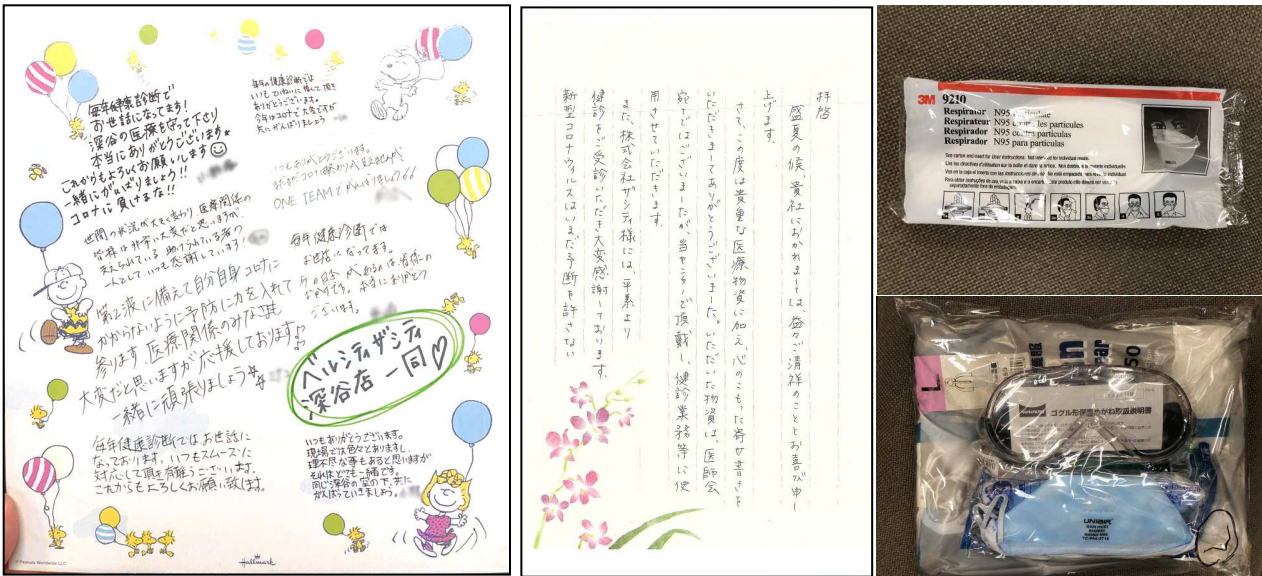 毎年健康診断で
お世話になってます!
深谷の医療を守って下さり
本当にありがとうございます
これからもよろしくお願いします
一緒にがんばりましょう!!
コロナに負けるな!!
毎年の健康診断では
いつもていねいに接して頂き
ありがとうございます。
今年はコロナで大変ですが
共にがんばりましょう
いつもありがとうございます。
ONE TEAMでがんばりましょう
世間の状況が大きく変わり、医療関係の
皆様は非常に大変だと思いますが、
支えられている 助けられている者の
一人として いつも感謝しています!
毎年健康診断では
お世話になってます。
皆様の
おかげです。本当にありがとう
ございます。
第2波に備えて自分自身コロナに
かからないように予防に力を入れて
参ります 医療関係のみなさま
大変だと思いますが応援しております
一緒に頑張りましょう
ベルシティザシティ
深谷店一同♡
毎年健康診断ではお世話に
なっております。いつもスムーズに
対応して頂き有難うございます。
これからもよろしくお願い致します。
いつもありがとうございます。
現場では色々とありますし、
理不尽な事もあると思いますが
それはどこでも一緒です。
同じ深谷の空の下、共に
がんばっていきましょう。
Peanuts Worldwide LLC
Hallmark
拝啓
盛夏の候、貴社におかれましては、益々ご清祥のこととお喜び申し
上げます。
さて、この度は貴重な医療物資に加え、心のこもった寄せ書きを
いただきましてありがとうございました。いただいた物資は、医師会
宛てではございましたが、当センターで頂戴し、健診業務等に使
用させていただきます。
また、株式会社ザシティ様には、平素より
健診をご受診いただき大変感謝しております。
新型コロナウィルスはいまだ予断を許さない
3M 9210
Respirator N95 Particulate
Respirateur N95 contre les particules
Respirador N95 contra partículas
Respirador N95 para partículas
See carton and insert for User Instructions. Not intended for individual resale.
L
50
ゴグル形保護めがね取扱説明書
UNIBIR